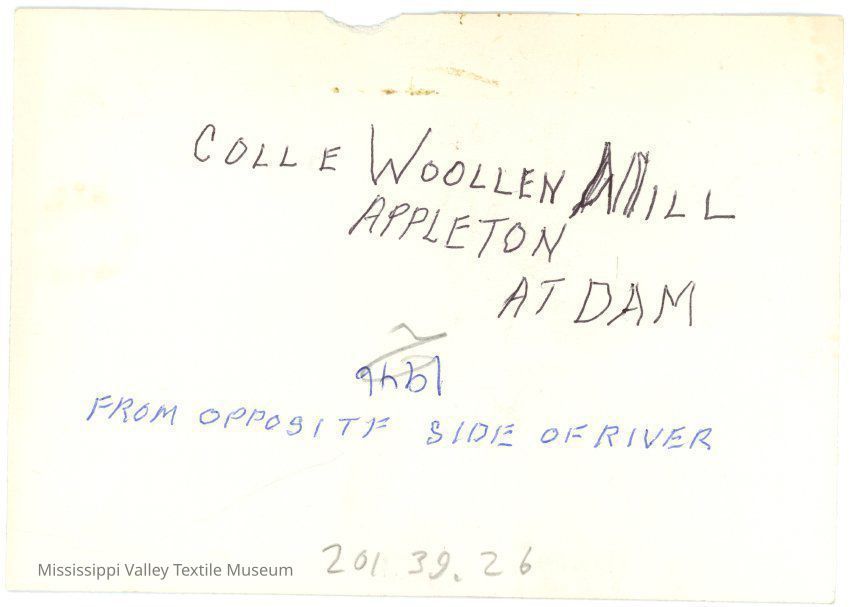 COLLE WOOLLEN MILL
APPLETON
AT DAM
1946
FROM OPPOSITF SIDE OF RIVER
201.39.26
Mississippi Valley Textile Museum